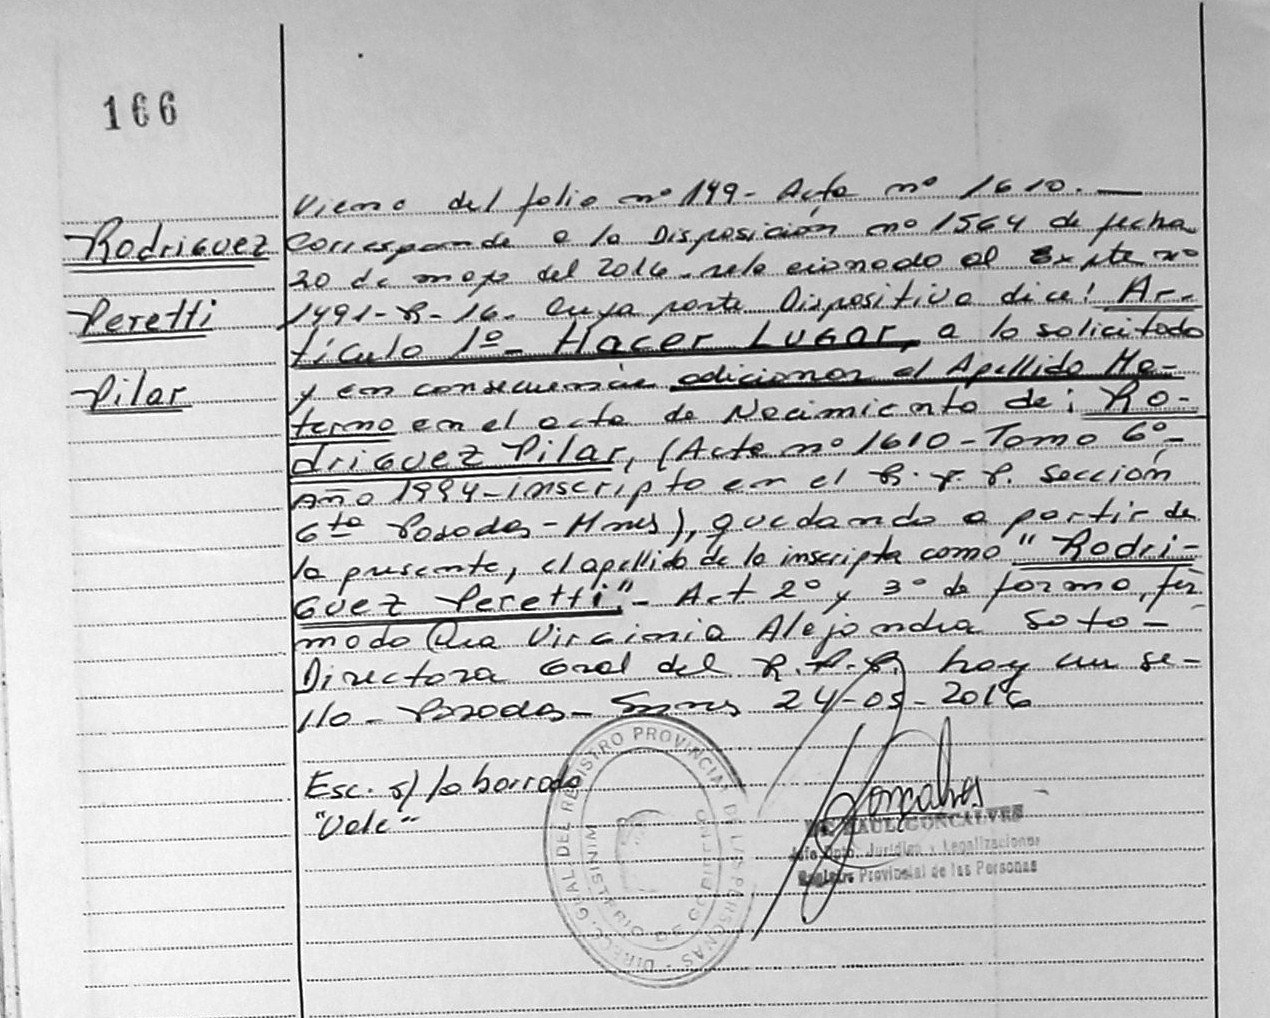 166
Rodriguez
Peretti
Pilar
Viene del folio nº 149- Acta nº 1610.-
Corresponde a la Disposición nº 1564 de fecha
20 de mayo del 2016- relacionado al Expte nº
1491-R-16- Cuya parte Dispositiva dice: Ar-
tículo 1º- Hacer Lugar, a lo solicitado
y en consecuencia adicionar el Apellido Ma-
terno en el acta de Nacimiento de: Ro-
driguez Pilar, (Acta nº 1610-Tomo 6º-
Año 1994-inscripta en el R.P.P. Sección
6ta Posadas-Mnes), quedando a partir de
la presente, el apellido de la inscripta como "Rodri-
guez Peretti"- Art 2º y 3º de forma, fir-
mado Dra Virginia Alejandra Soto-
Directora Gral del R.P.P. hay un se-
llo- Posadas- 24-05-2016
Esc. s/ lo borrado
"Vale"
Goncalves
RAUL GONCALVES
Jefe Dpto. Jurídico y Legalizaciones
Registro Provincial de las Personas
DIRECC. GRAL DEL REGISTRO PROVINCIAL DE LAS PERSONAS
MINISTERIO DE GOBIERNO